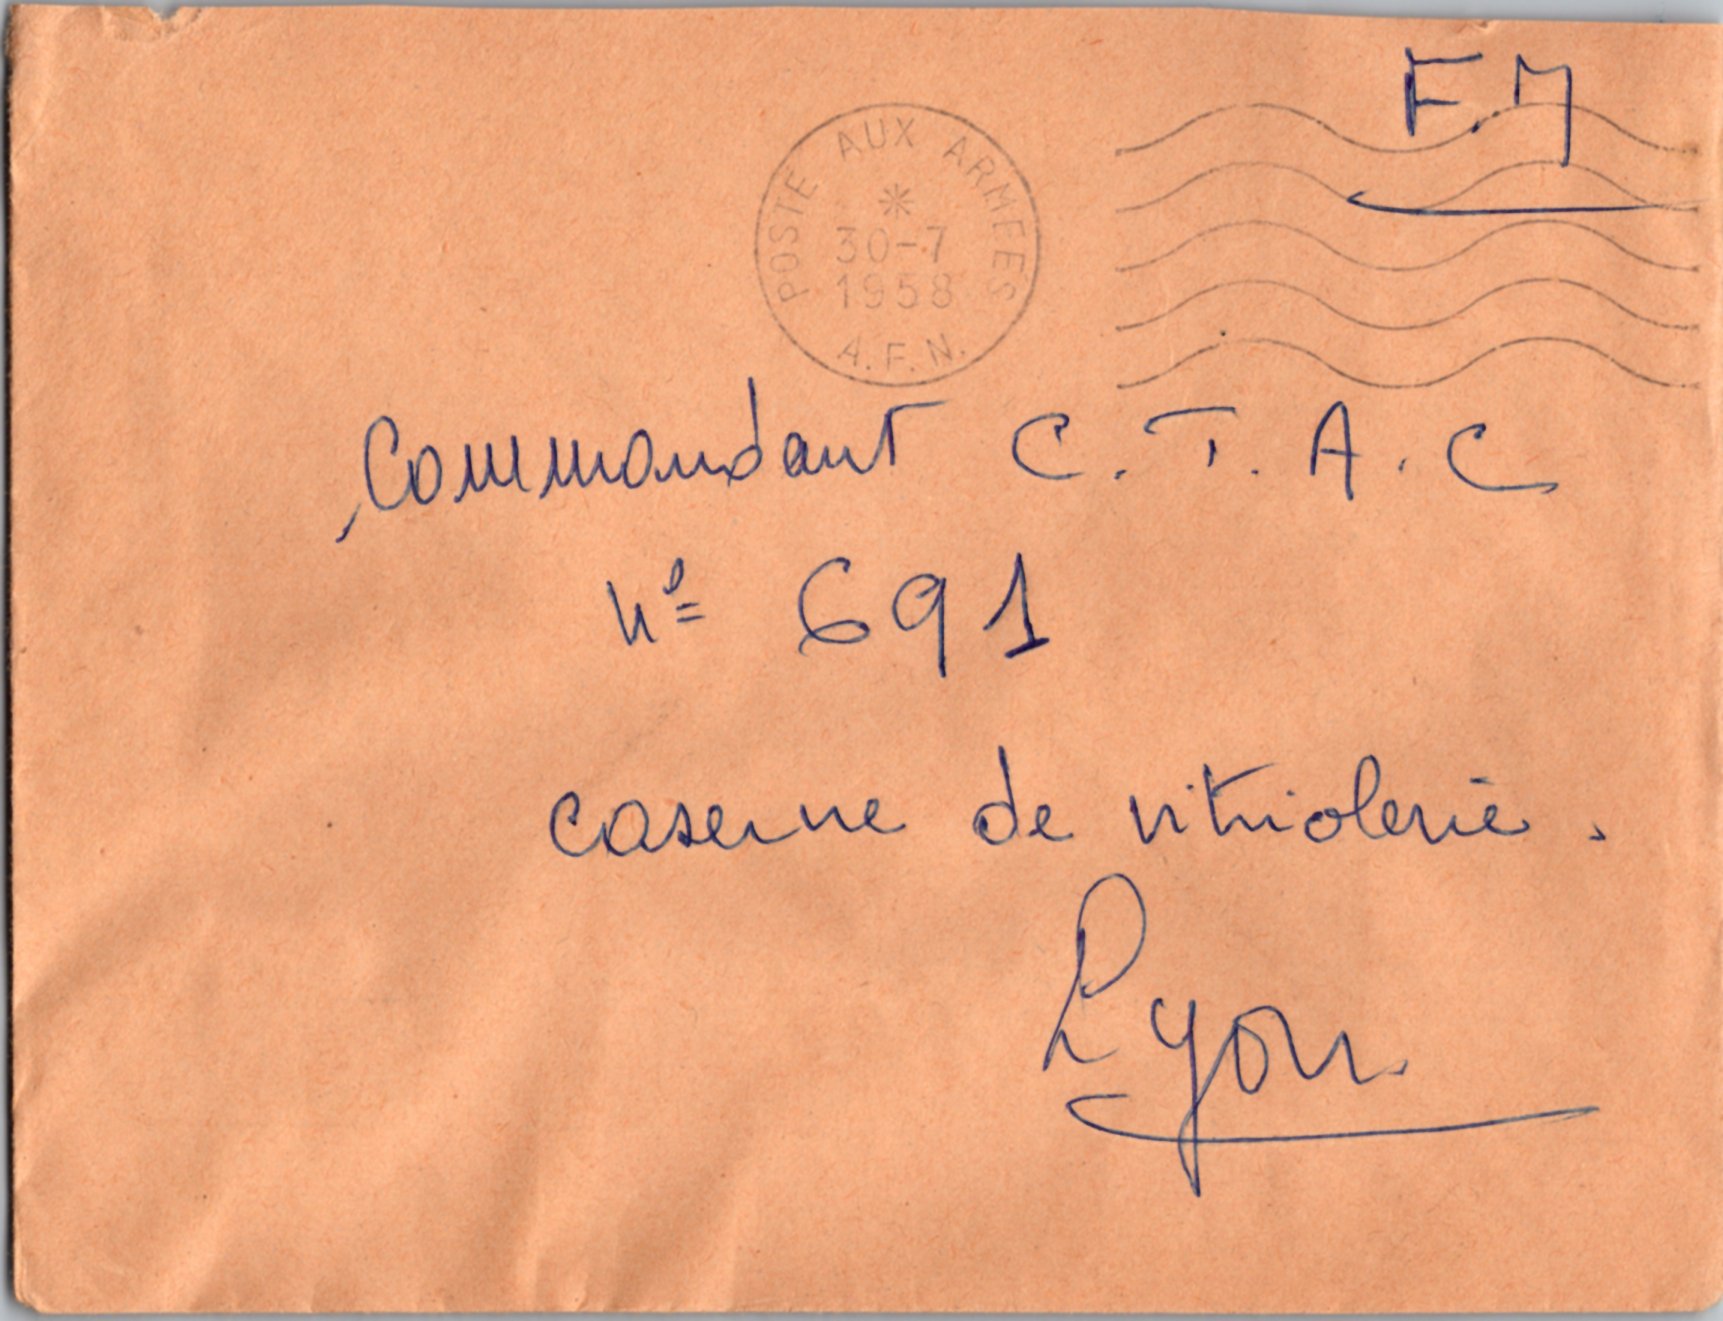 F.M
POSTE AUX ARMEES
*
30-7
1958
A.F.N.
Commandant C.T.A.C
N° 691
caserne de vitriolerie.
Lyon